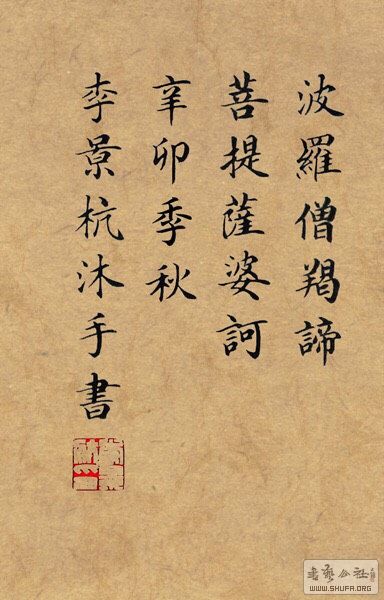 波羅僧羯諦
菩提薩婆訶
辛卯季秋
李景杭沐手書
書藝公社
WWW.SHUFA.ORG